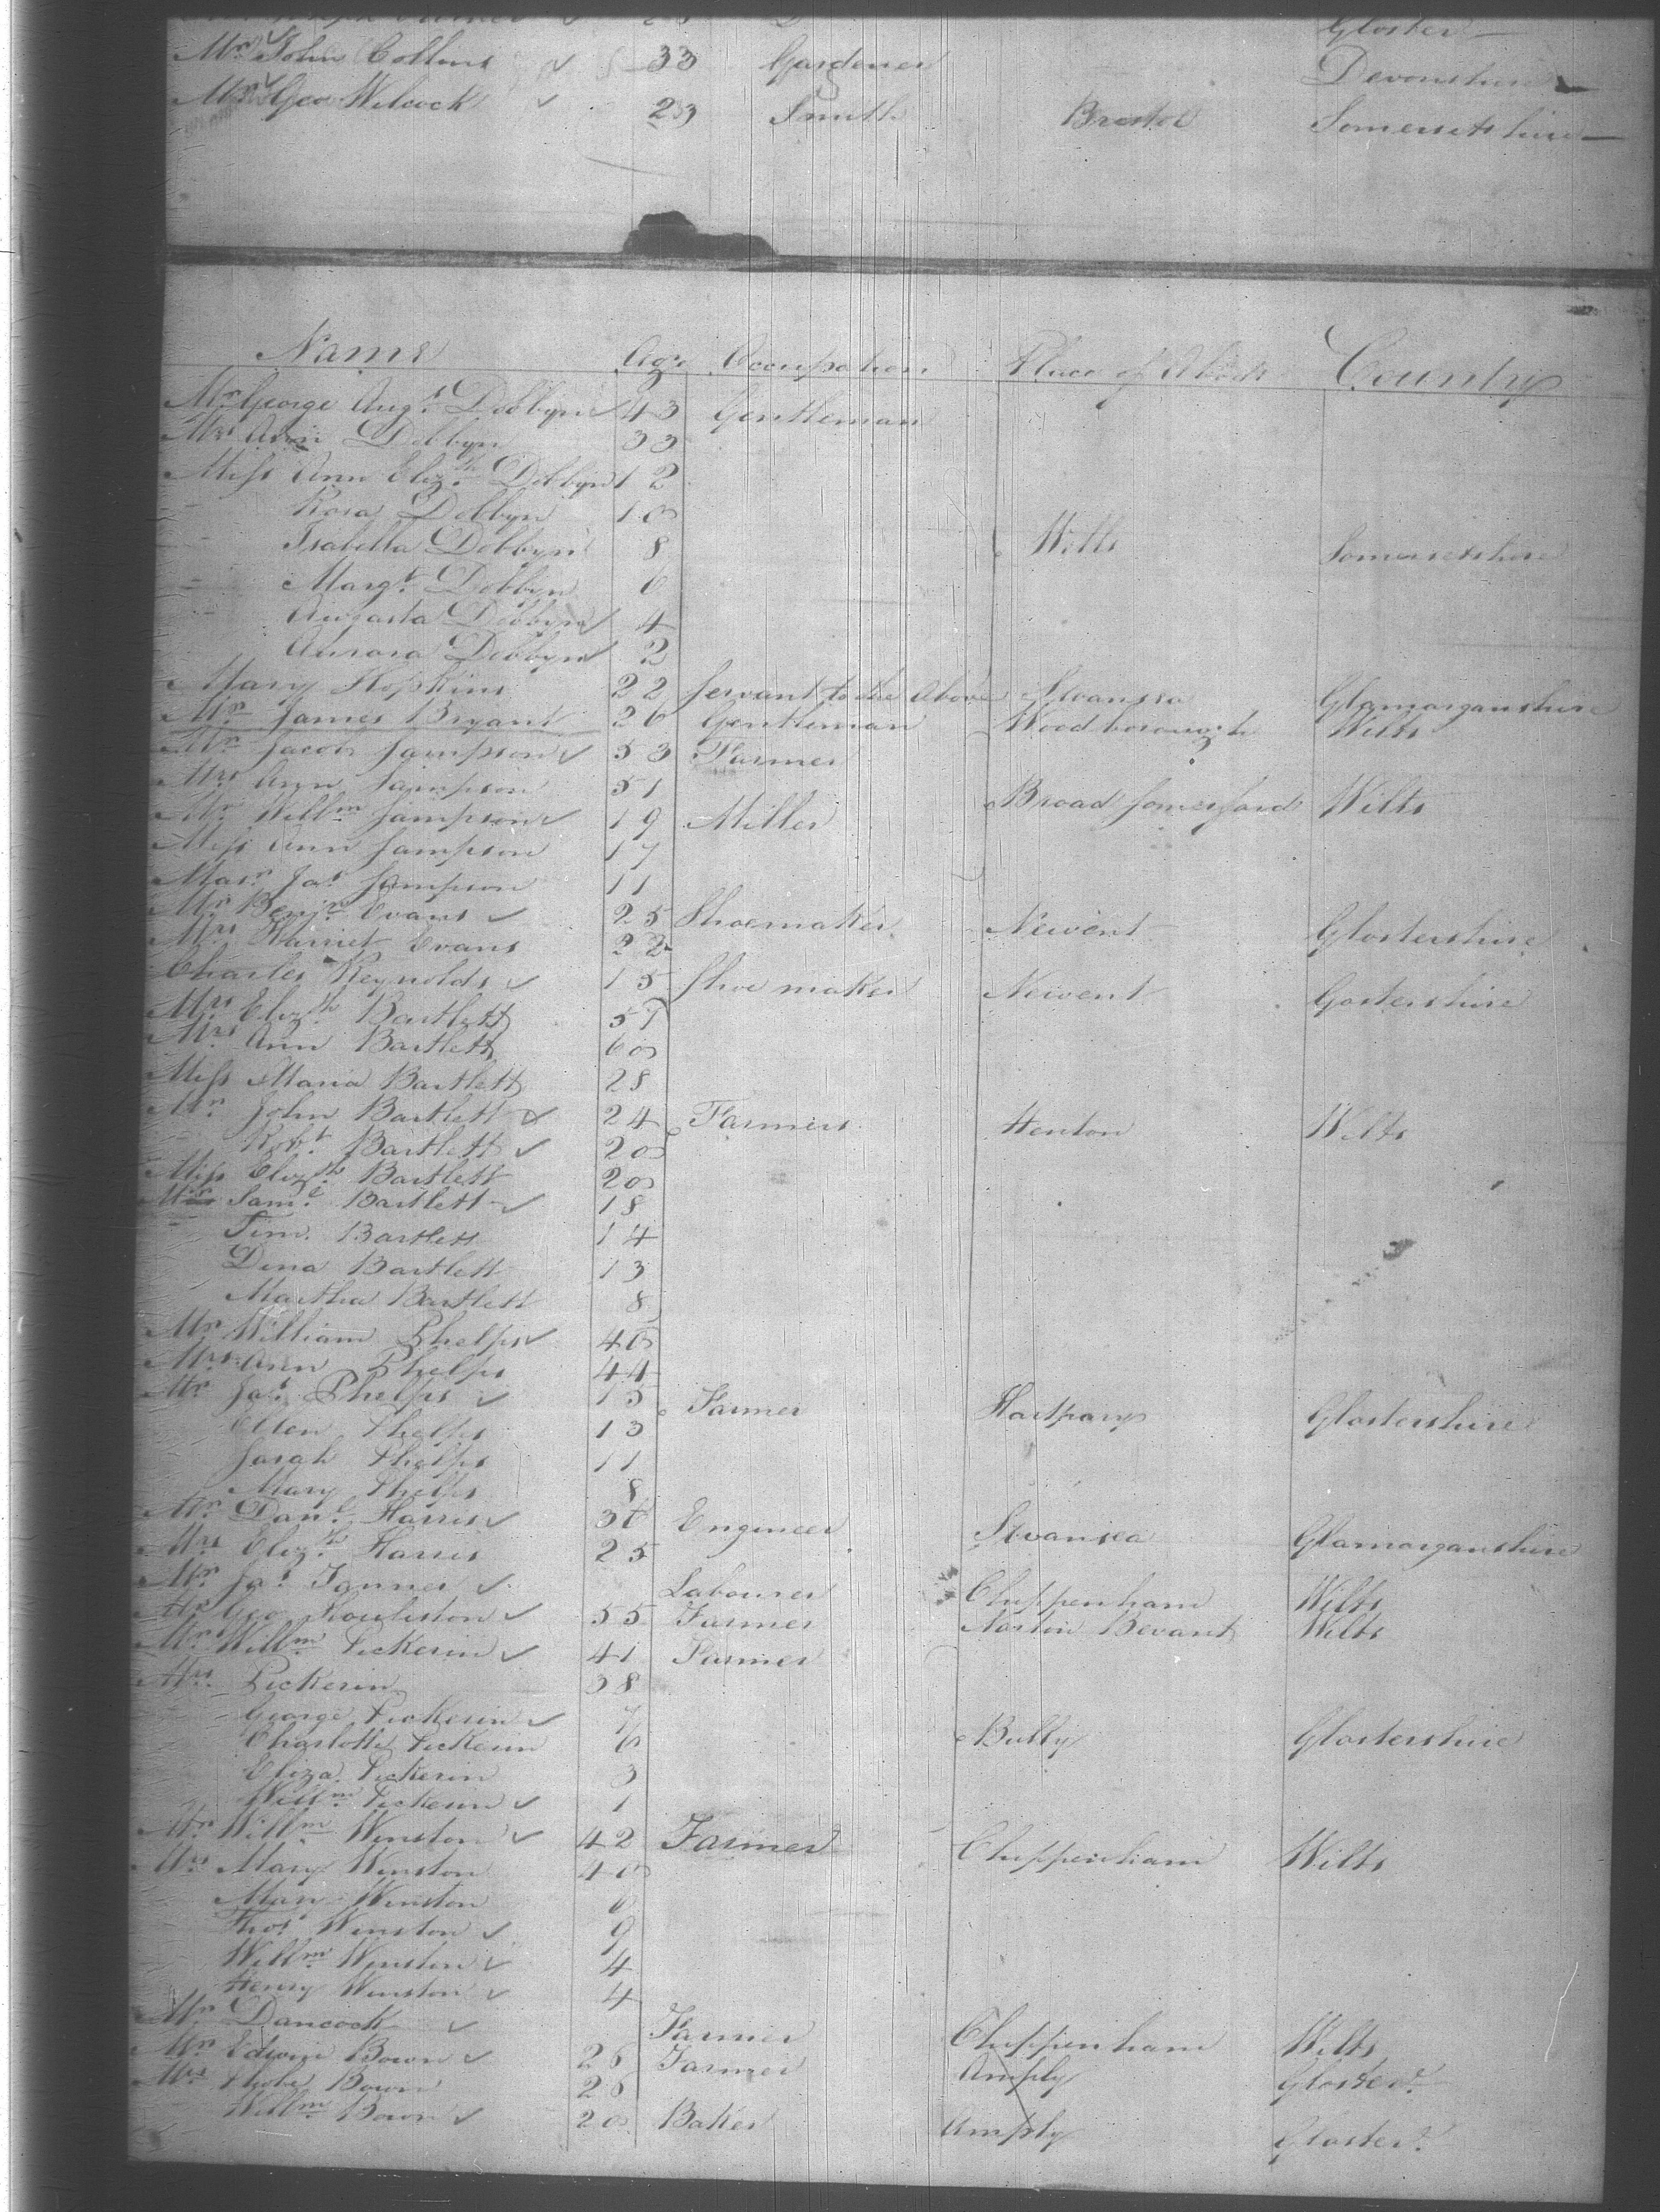 Gloster
Mr John Collins 33 Gardener Devonshire
Mr Geo Wilcock 23 Smith Bristol Somersetshire
Name Age Occupation Place of Abode Country
Mr George Augs Dobbyn 43 Gentleman
Mrs Ann Dobbyn 33
Miss Ann Elizth Dobbyn 12
Rosa Dobbyn 10
Isabella Dobbyn 8 Wells Somersetshire
Margt Dobbyn 6
Augasta Dobbyn 4
Aurora Dobbyn 2
Mary Hopkins 22 Servant to the Above Swansea Glamorganshire
Mr James Bryant 26 Gentleman Woodborough Wilts
Mr Jacob Sampson 53 Farmer
Mrs Ann Sampson 51
Mr Willm Sampson 19 Miller Broad Somerford Wilts
Miss Ann Sampson 17
Masr Jas Sampson 11
Mr Benjn Evans 25 Shoemaker Newent Glostershire
Mrs Harriet Evans 22
Charles Reynolds 15 Shoe maker Newent Gostershire
Mrs Elizth Bartlett 57
Mrs Ann Bartlett 60
Miss Maria Bartlett 28
Mr John Bartlett 24 Farmers Henton Wilts
Robt Bartlett 20
Miss Elizth Bartlett 20
Mr Saml Bartlett 18
Tim. Bartlett 14
Dina Bartlett 13
Martha Bartlett 8
Mr William Phelps 40
Mrs Ann Phelps 44
Mr Jas Phelps 15 Farmer Hartpary Glostershire
Ellen Phelps 13
Sarah Phelps 11
Mary Phelps 8
Mr Danl Harris 30 Engineer Swansea Glamorganshire
Mrs Elizth Harris 25
Mr Jas Tanner Labourer Chippenham Wilts
Mr Geo Rouliston 55 Farmer Norton Bevant Wilts
Mr Willm Pickerin 41 Farmer
Mrs Pickerin 38
George Pickerin 7
Charlotte Pickerin 6 Bully Glostershire
Eliza Pickerin 3
Willm Pickerin 1
Mr Willm Winston 42 Farmer Chippenham Wilts
Mrs Mary Winston 40
Mary Winston 6
Thos Winston 9
Willm Winston 4
Henry Winston 4
Mr Dancock Farmer Chippenham Wilts
Mr Edwin Bown 26 Farmer Amply Gloster
Mrs Phobe Bown 26
Willm Bown 20 Baker Amply Gloster